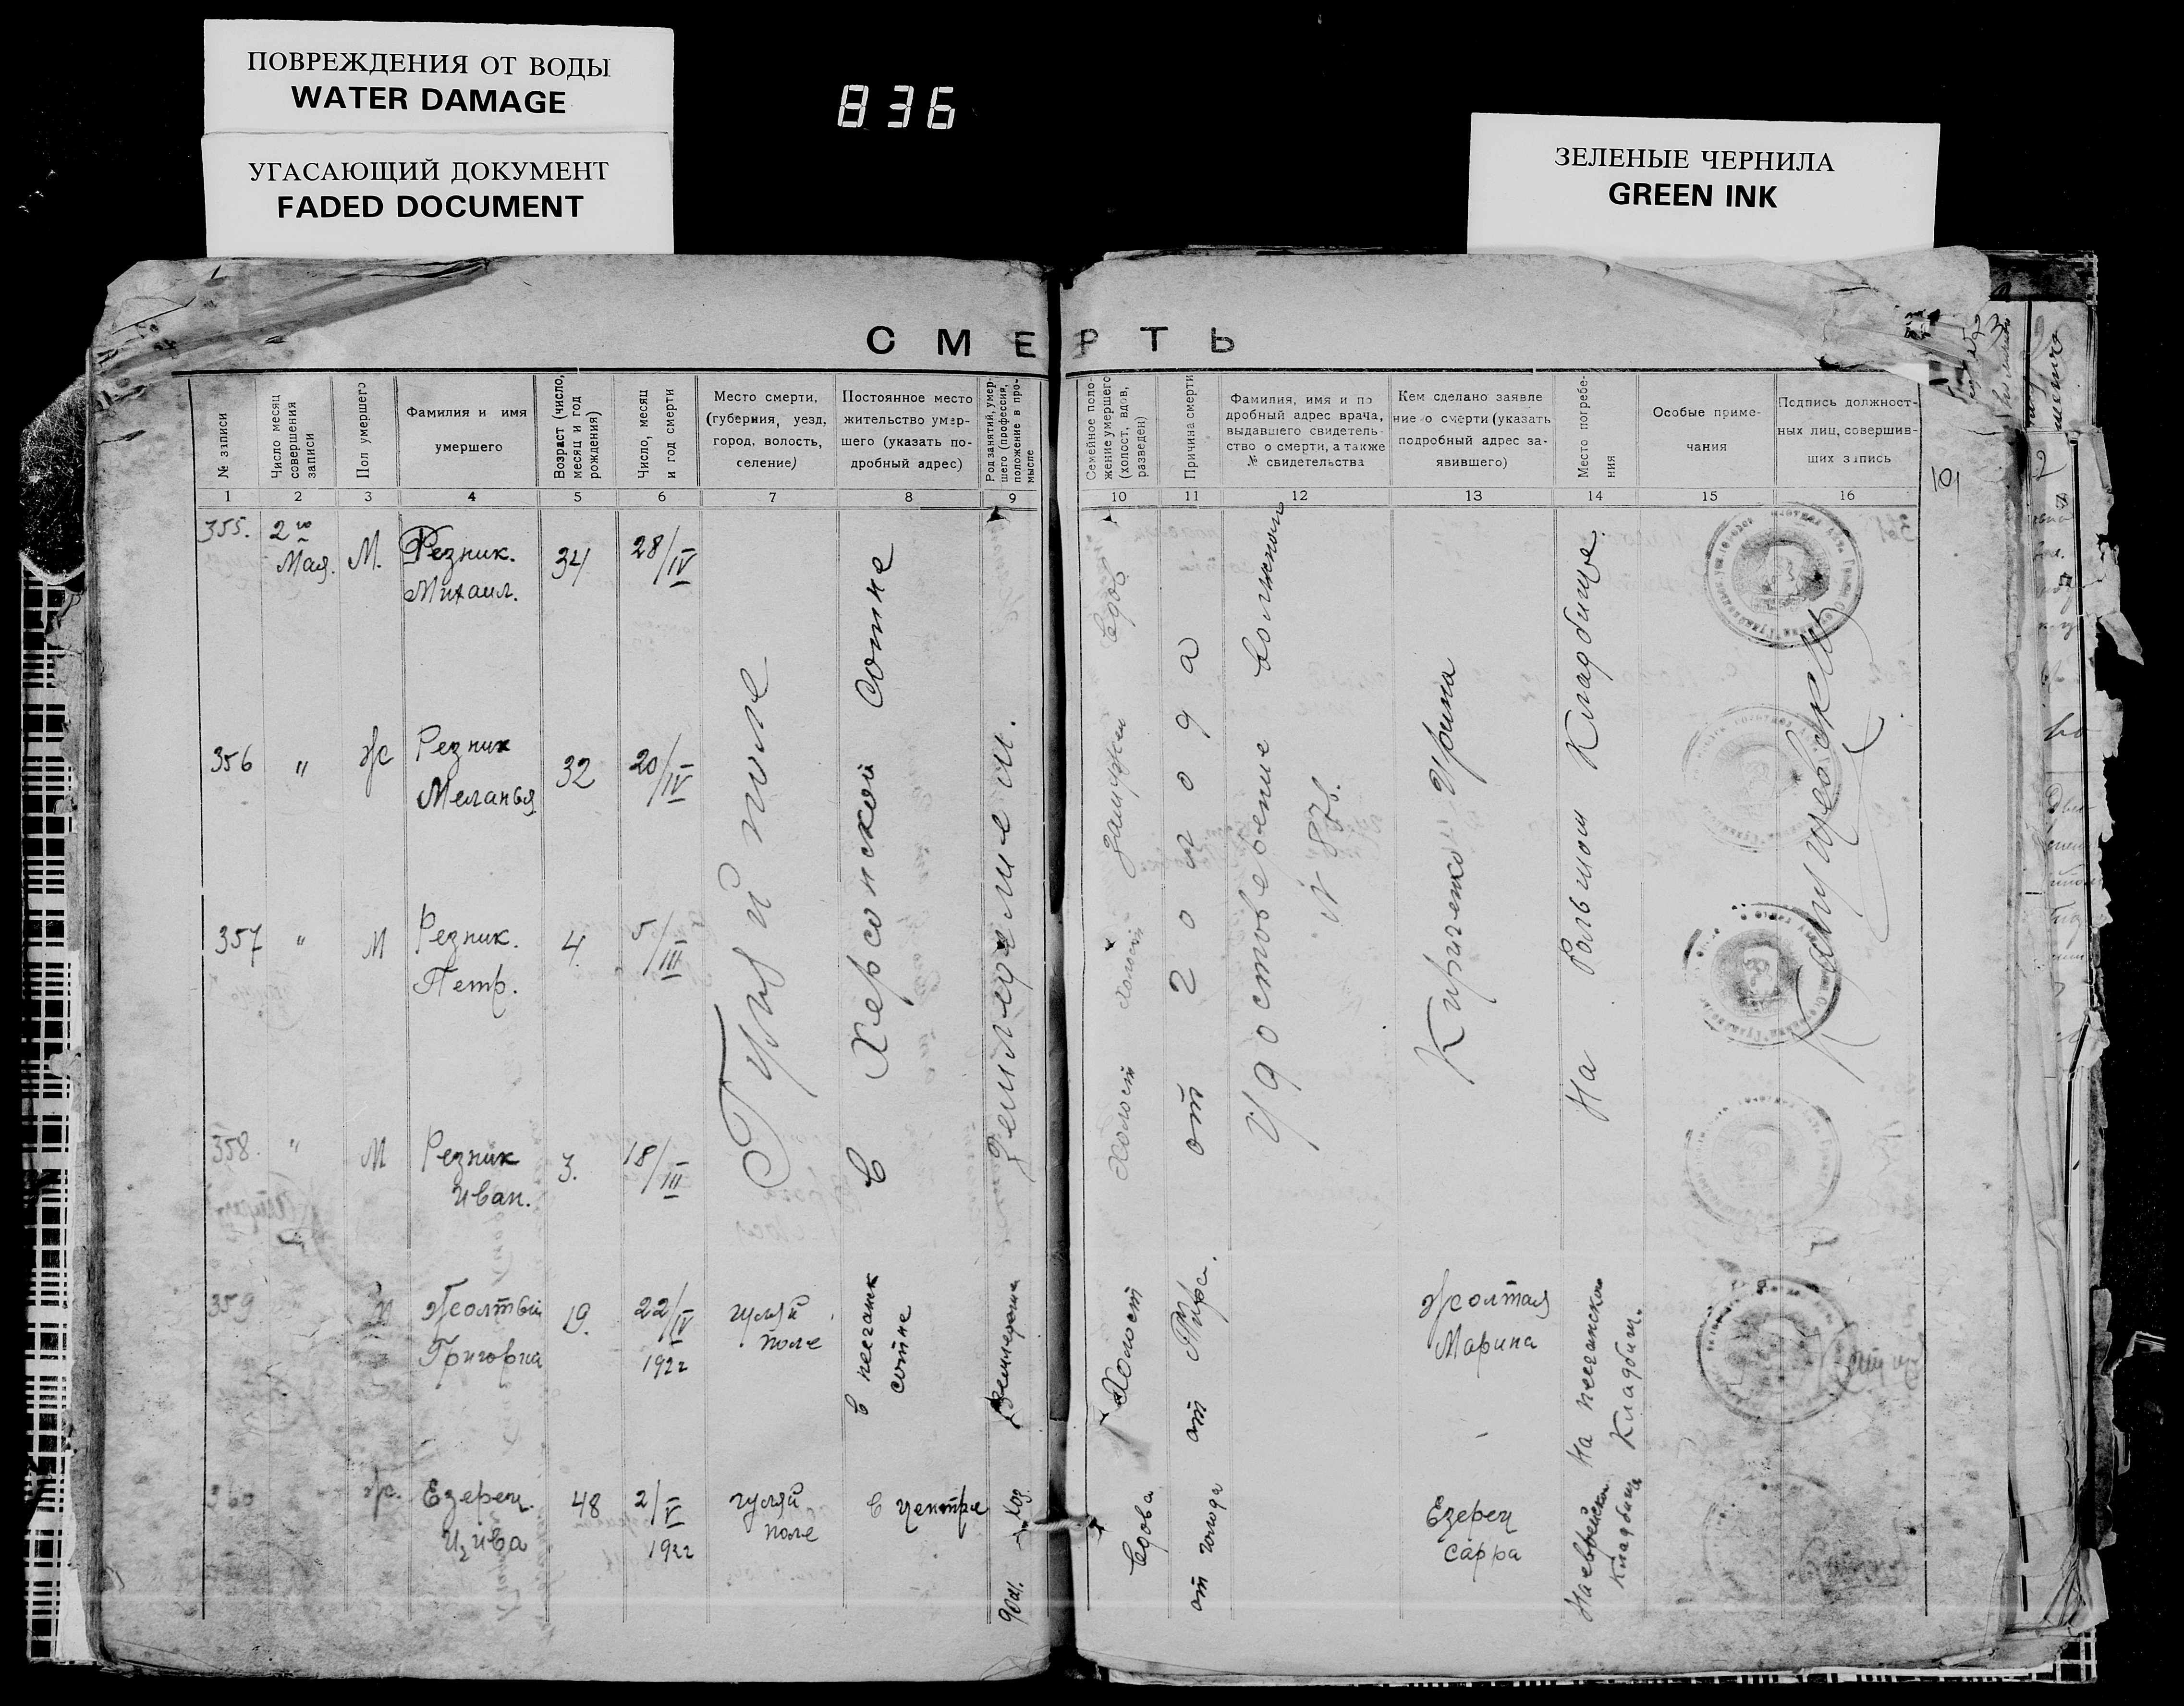 ПОВРЕЖДЕНИЯ ОТ ВОДЫ
WATER DAMAGE
УГАСАЮЩИЙ ДОКУМЕНТ
FADED DOCUMENT
836
ЗЕЛЕНЫЕ ЧЕРНИЛА
GREEN INK
СМЕРТЬ
№ записи
Число месяц
совершения
записи
Пол умершего
Фамилия и имя
умершего
Возраст (число,
месяц и год
рождения)
Число, месяц
и год смерти
Место смерти,
(губерния, уезд,
город, волость,
селение)
Постоянное место
жительство умер-
шего (указать по-
дробный адрес)
Род занятий, умер-
шего (профессия,
положение в про-
мысле
Семейное поло-
жение умершего
(холост, вдов,
разведен)
Причина смерти
Фамилия, имя и по
дробный адрес врача,
выдавшего свидетель-
ство о смерти, а также
№ свидетельства
Кем сделано заявле
ние о смерти (указать
подробный адрес за-
явившего)
Место погребе-
ния
Особые приме-
чания
Подпись должност-
ных лиц, совершив-
ших запись
1 2 3 4 5 6 7 8 9 10 11 12 13 14 15 16
355. 2го М. Резник. 34 28/IV
Мая. Михаил.
356 " Ж Резник 32 20/IV
Меланья
357 " М Резник. 4. 5/III
Петр.
358. " М Резник 3. 18/III
Иван.
Гуляй поле
в Херсонской сотне
Земледелие
вдов
замужем
холост
холост
от голода
Удостоверение
№ 876.
Кириченко Ирина
На Больном Кладбище
359 М Жолтый 19. 22/IV гуляй
Григорий 1922 поле
в песчанск
сотне
Земледелие
Холост
от Тифа.
Жолтая
Марина
На песчанском
Кладбищ.
360 Ж. Езерец. 48 2/V гуляй в центре
Цива 1922 поле
дом. хоз.
вдова
от голода
Езерец
Сарра
На еврейском
Кладбищ